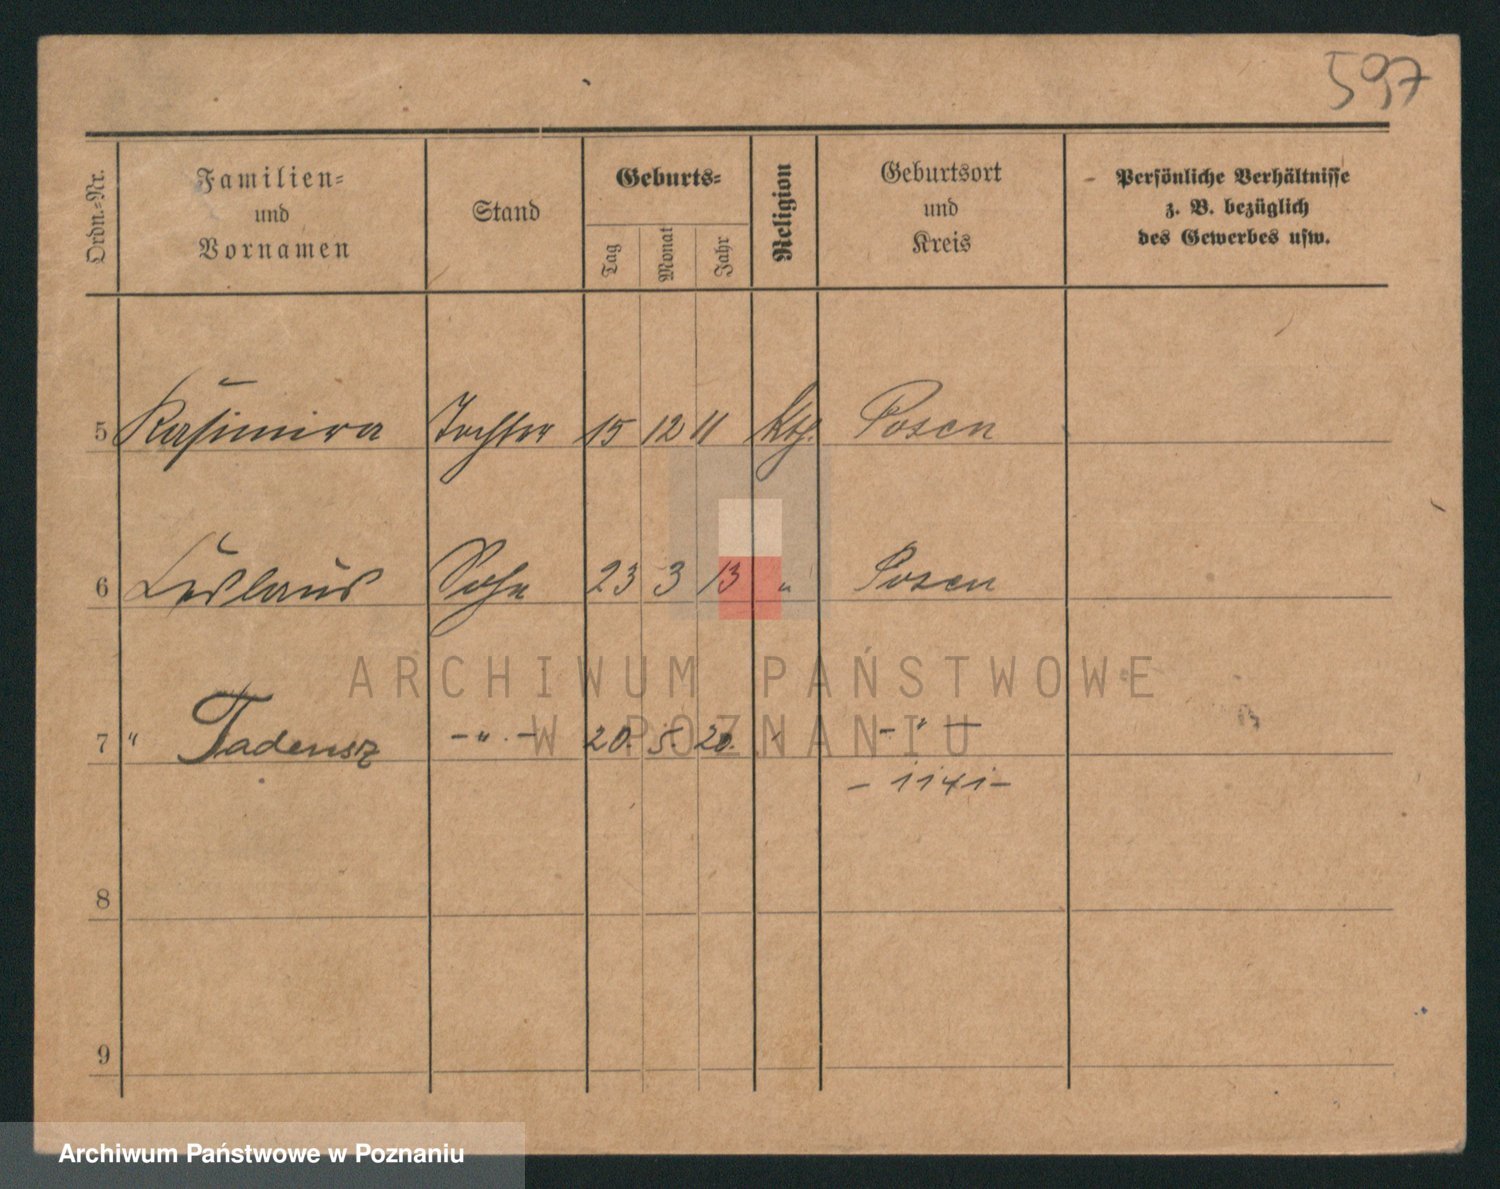 597
Ordn.-Nr.
Familien-
und
Vornamen
Stand
Geburts-
Tag
Monat
Jahr
Religion
Geburtsort
und
Kreis
Persönliche Verhältnisse
z. B. bezüglich
des Gewerbes usw.
5 Kasimira Tochter 15 12 11 kth. Posen
6 Ladislaus Sohn 23 3 13 " Posen
ARCHIWUM PAŃSTWOWE
W POZNANIU
7 " Tadeusz -"- 20. 5. 20. -"-
8
9
Archiwum Państwowe w Poznaniu